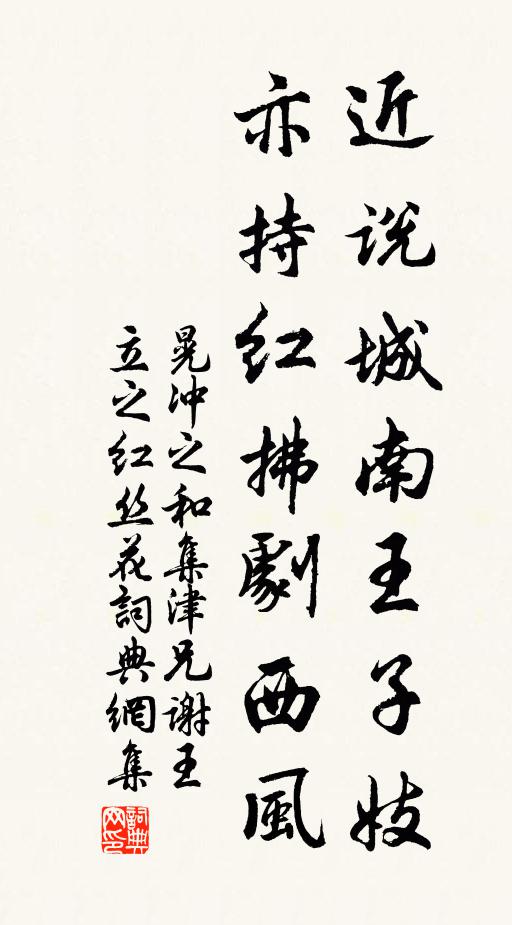 近说城南王子妓
亦持红拂劇西風
晁冲之和集津兄謝王
立之红丝花詞典網集
詞典网印